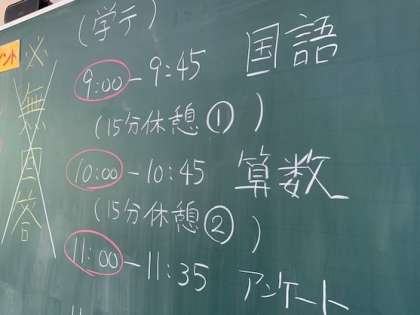 (学テ)
9:00-9:45 国語
(15分休憩①)
10:00-10:45 算数
(15分休憩②)
11:00-11:35 アンケート
※無回答